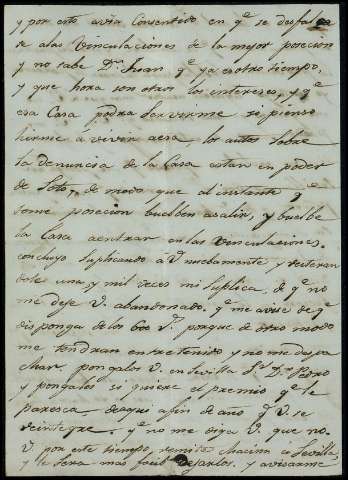 y por esto avia consentido en q.e se desfalca
se alas vinculaciones de la mejor posecion
y no sabe D.n Juan q.e ya es otro tiempo,
y que hora son otros los intereses, y q.e
esa Casa podrá servirme si pienso
hirme á vivir aesa. los autos sobre
la denuncia de la Casa estan en poder
de Soto, de modo que al instante q.e
tome posecion buelben asalir, y buelbe
la Casa aentrar en las vinculaciones.
concluyo suplicando á V. nuebamente y reiteran
dole una, y mil veces mi suplica, de q.e no
me deje V. abandonado, q.e me avise de q.e
disponga de los 600 p.s porque de otro modo
me tendran entretenido y no me despa
char. pongalos V. en Sevilla S.r D.n Pedro
y pongalos si quiere el premio q.e le
paresca de aqui a fin de año q.e V. se
reintegre, y no me diga V. que no.
V. por este tiempo remite a Sevilla,
y le será mas facil dejarlos, y avisarme